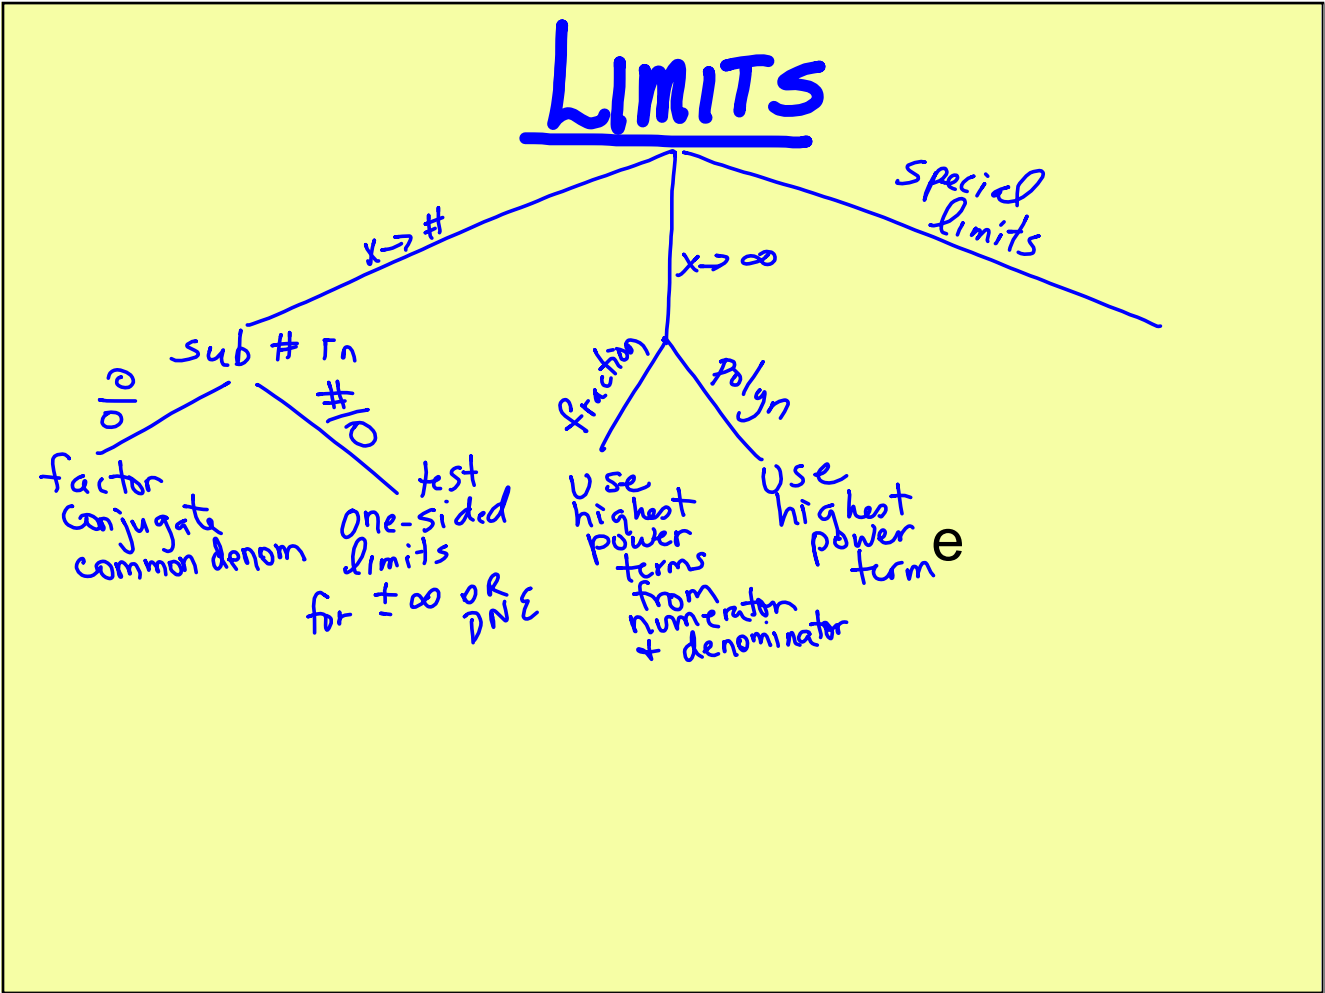 LIMITS
x→#
x→∞
special
limits
sub # in
0/0
#/0
factor
conjugate
common denom
test
one-sided
limits
for ±∞ OR
DNE
fraction
Polyn
use
highest
power
terms
from
numerator
+ denominator
use
highest
power
term
e